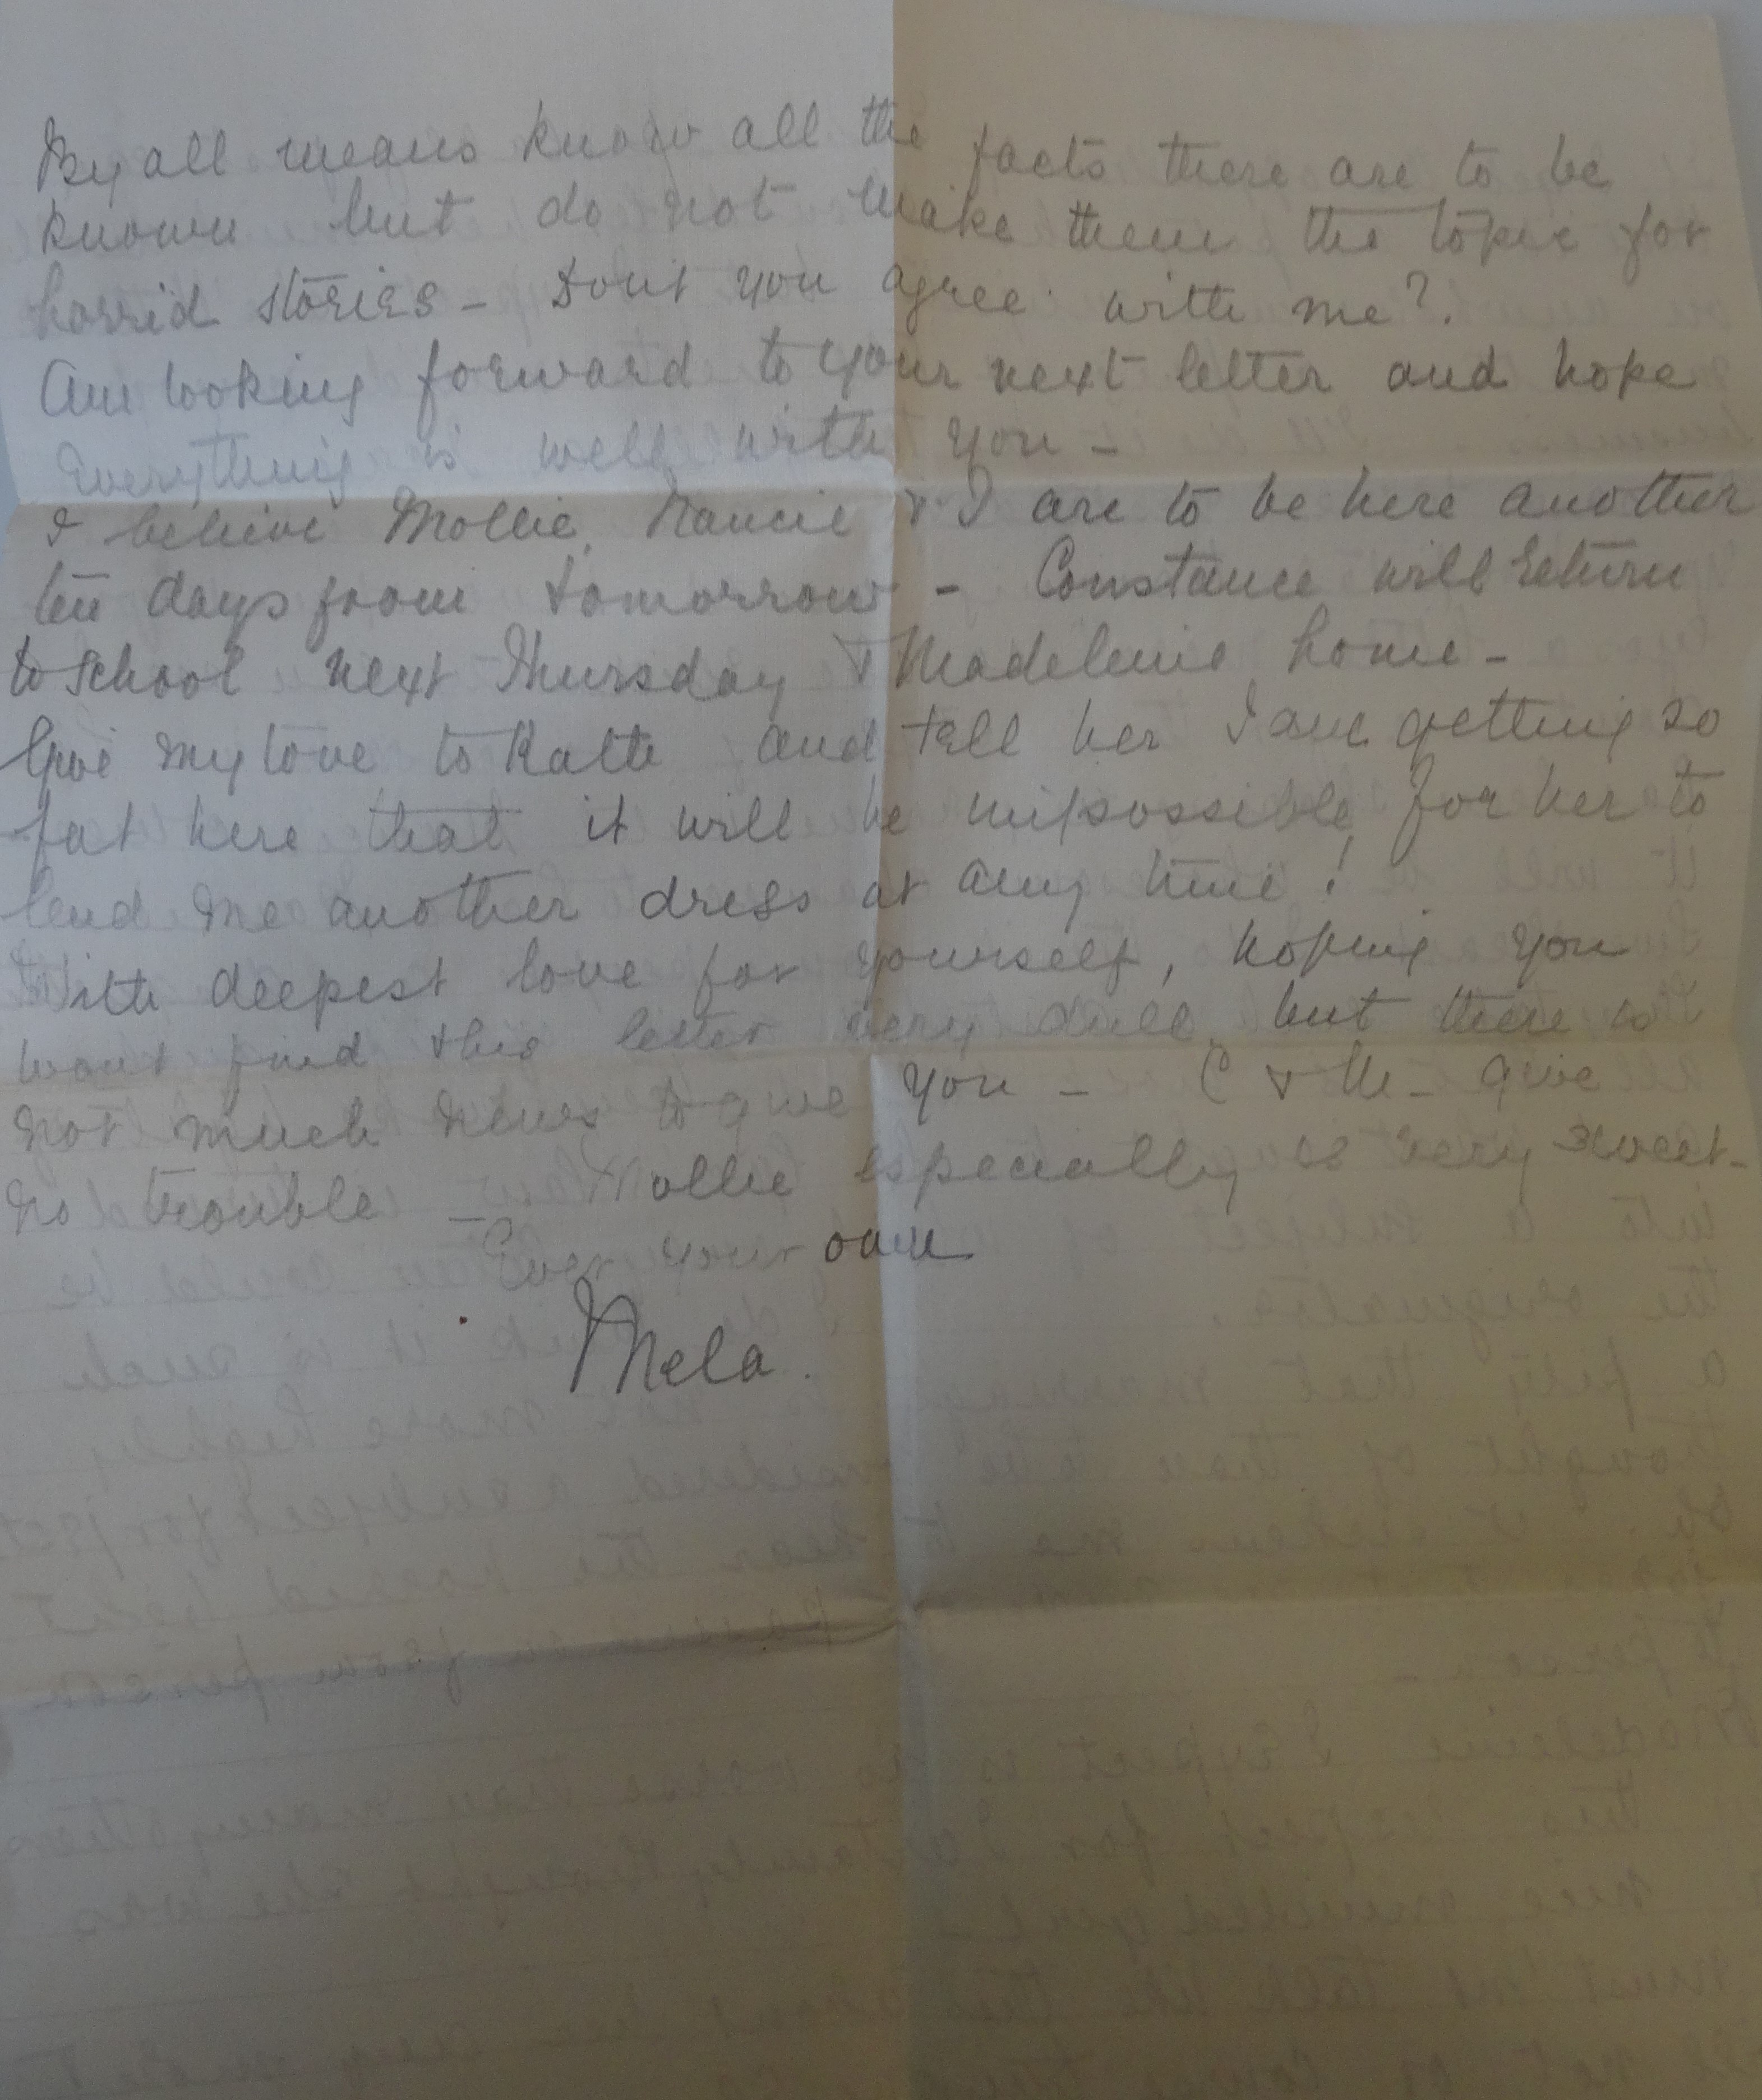 By all means know all the facts there are to be
known but do not make them the topic for
horrid stories - Dont you agree with me?
Am looking forward to your next letter and hope
everything is well with you -
I believe Mollie, Nancie & I are to be here another
ten days from tomorrow - Constance will return
to school next Thursday & Madeleine home -
Give my love to Katte and tell her I am getting so
fat here that it will be impossible for her to
lend me another dress at any time!
With deepest love for yourself, hoping you
wont find this letter very dull, but there is
not much news to give you - C & M - give
no trouble - Mollie especially is very sweet -
Ever your own
Mela.